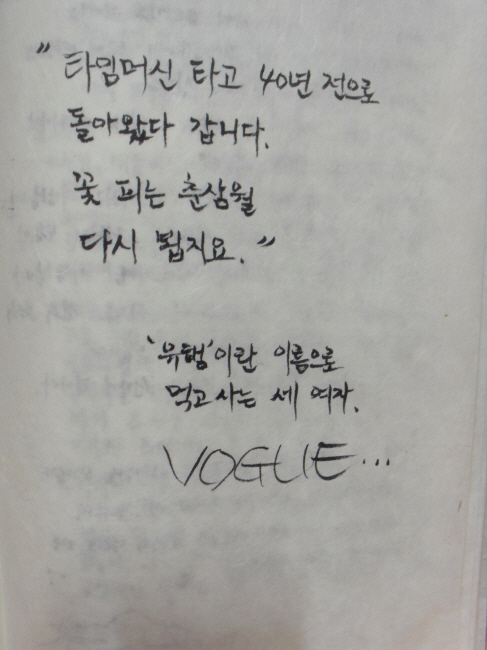 "타임머신 타고 40년 전으로
돌아왔다 갑니다.
꽃 피는 춘삼월
다시 뵙지요."
'유행'이란 이름으로
먹고 사는 세 여자.
VOGUE...